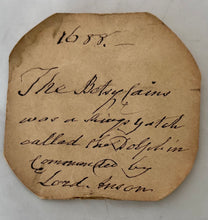 1688.—
The Betsy Cains
was a kings yatch
called the Dolphin
Commanded by
Lord Anson